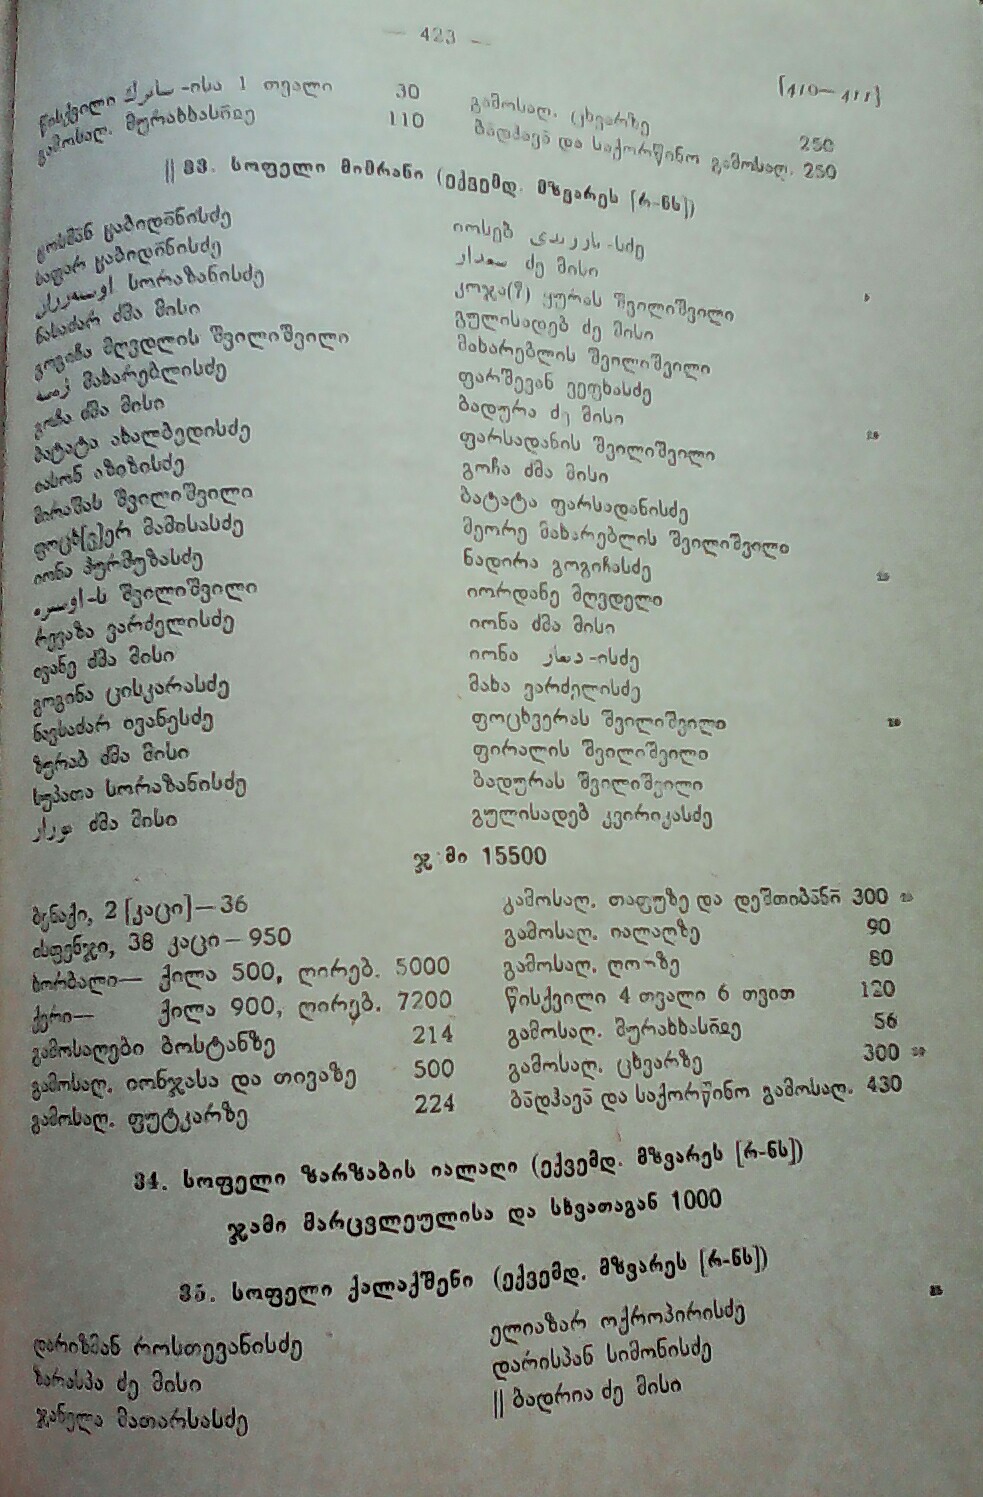 — 423 —
[410—411]
წისქვილი -ისა 1 თვალი 30
გამოსაღ. მურახხასი̄დე 110
გამოსაღ. ცხვარზე 250
ბა̄დჰავა̄ და საქორწინო გამოსაღ. 250
|| 33. სოფელი მიმრანი (ექვემდ. მზვარეს [რ-ნს])
ცაბიდა̄ნისძე
საფარ ცაბიდა̄ნისძე
სორაზანისძე
ნასაძარ ძმა მისი
გოგიჩა მღვდლის შვილიშვილი
მახარებლისძე
გოჩა ძმა მისი
ბატატა ახალბედისძე
იასონ აზიზისძე
მირაშას შვილიშვილი
ფოცხ[ვ]ერ მამისასძე
იონა ჰურმუზასძე
შვილიშვილი
რევაზა ვარძელისძე
ივანე ძმა მისი
გოგინა ცისკარასძე
ნავსაძარ ივანესძე
ზურაბ ძმა მისი
სუპათა სორაზანისძე
ძმა მისი
იოსებ -სძე
ძე მისი
კოჯა(?) ყურას შვილიშვილი
გულისადებ ძე მისი
მახარებლის შვილიშვილი
ფარშევან ვეფხასძე
ბადურა ძე მისი
ფარსადანის შვილიშვილი
გოჩა ძმა მისი
ბატატა ფარსადანისძე
მეორე მახარებლის შვილიშვილი
ნადირა გოგიჩასძე
იორდანე მღვდელი
იონა ძმა მისი
იონა -ისძე
მახა ვარძელისძე
ფოცხვერას შვილიშვილი
ფირალის შვილიშვილი
ბადურას შვილიშვილი
გულისადებ კვირიკასძე
ჯამი 15500
ბენაქი, 2 [კაცი]—36
ისფენჯი, 38 კაცი—950
ხორბალი— ქილა 500, ღირებ. 5000
ქერი— ქილა 900, ღირებ. 7200
გამოსაღები ბოსტანზე 214
გამოსაღ. იონჯასა და თივაზე 500
გამოსაღ. ფუტკარზე 224
გამოსაღ. თაფუზე და დეშთიბა̄ნი̄ 300
გამოსაღ. იალაღზე 90
გამოსაღ. ღორზე 80
წისქვილი 4 თვალი 6 თვით 120
გამოსაღ. მურახხასი̄დე 56
გამოსაღ. ცხვარზე 300
ბა̄დჰავა̄ და საქორწინო გამოსაღ. 430
34. სოფელი ზარზაბის იალაღი (ექვემდ. მზვარეს [რ-ნს])
ჯამი მარცვლეულისა და სხვათაგან 1000
35. სოფელი ქალაქშენი (ექვემდ. მზვარეს [რ-ნს])
დარიზმან როსთევანისძე
ზარასპა ძე მისი
ჯანელა მათარსასძე
ელიაზარ ოქროპირისძე
დარისპან სიმონისძე
|| ბადრია ძე მისი